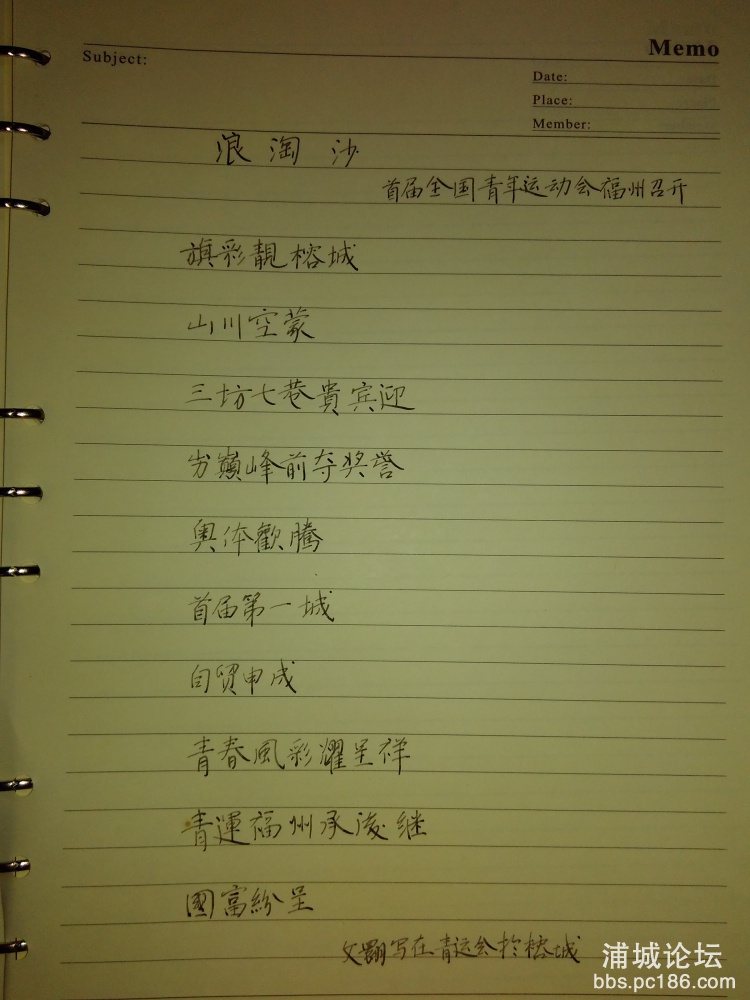 Memo
Subject:
Date:
Place:
Member:
浪淘沙
首届全国青年运动会福州召开
旗彩靚榕城
山川空蒙
三坊七巷貴宾迎
岁巅峰前夺奖誉
奥体歡腾
首届第一城
自贸申成
青春風彩耀呈祥
青運福州承後继
國富紛呈
写在青运会於榕城
浦城论坛
bbs.pc186.com